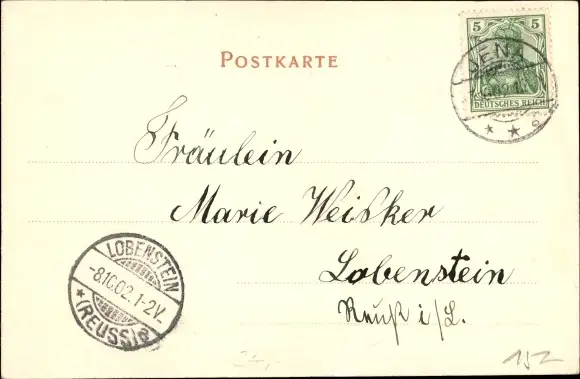 POSTKARTE
5 5
DEUTSCHES REICH
JENA
Fräulein
Marie Weisker
Lobenstein
Reuß i/L.
LOBENSTEIN
-8.10.02. 1-2V.
* (REUSS) a
152